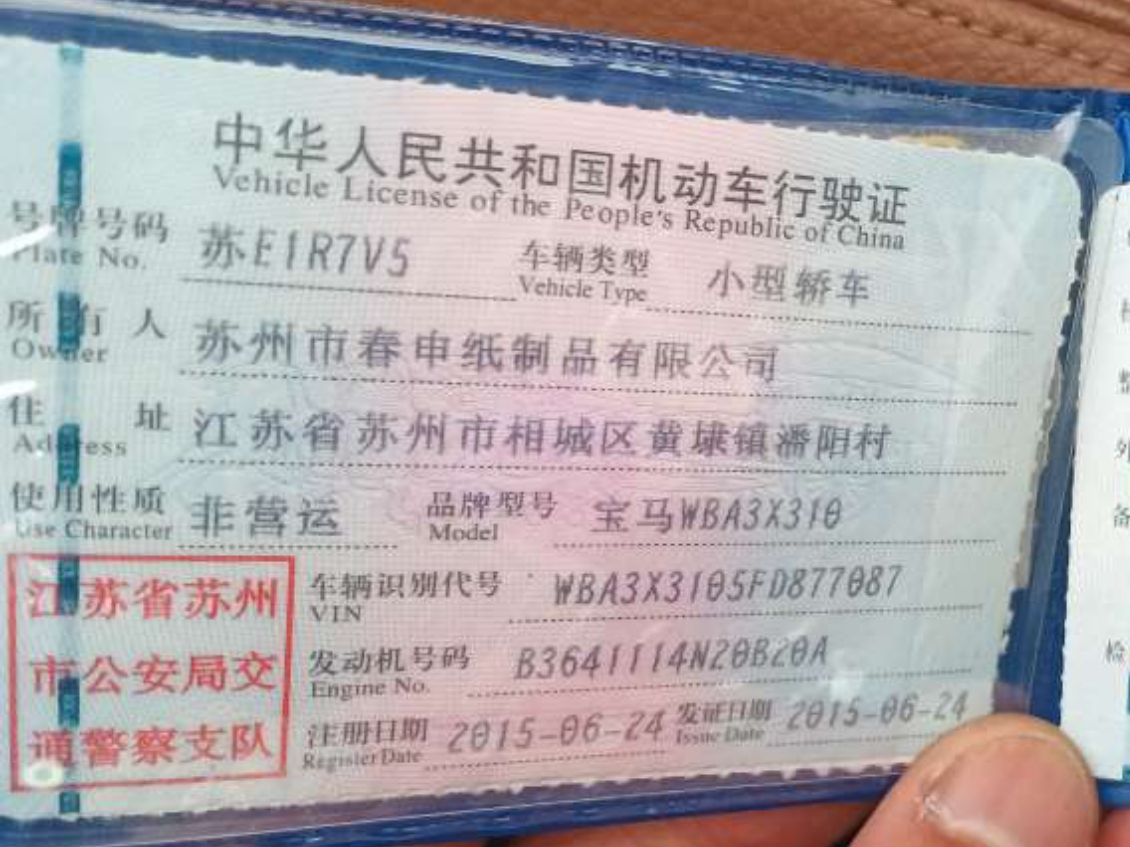 中华人民共和国机动车行驶证
Vehicle License of the People's Republic of China
号牌号码 苏E1R7V5 车辆类型 小型轿车
Plate No. Vehicle Type
所有人 苏州市春申纸制品有限公司
Owner
住址 江苏省苏州市相城区黄埭镇潘阳村
Address
使用性质 非营运 品牌型号 宝马WBA3X310
Use Character Model
江苏省苏州 车辆识别代号 WBA3X3105FD877087
VIN
市公安局交 发动机号码 B3641114N20B20A
Engine No.
通警察支队 注册日期 2015-06-24 发证日期 2015-06-24
Register Date Issue Date
整
外
备
检